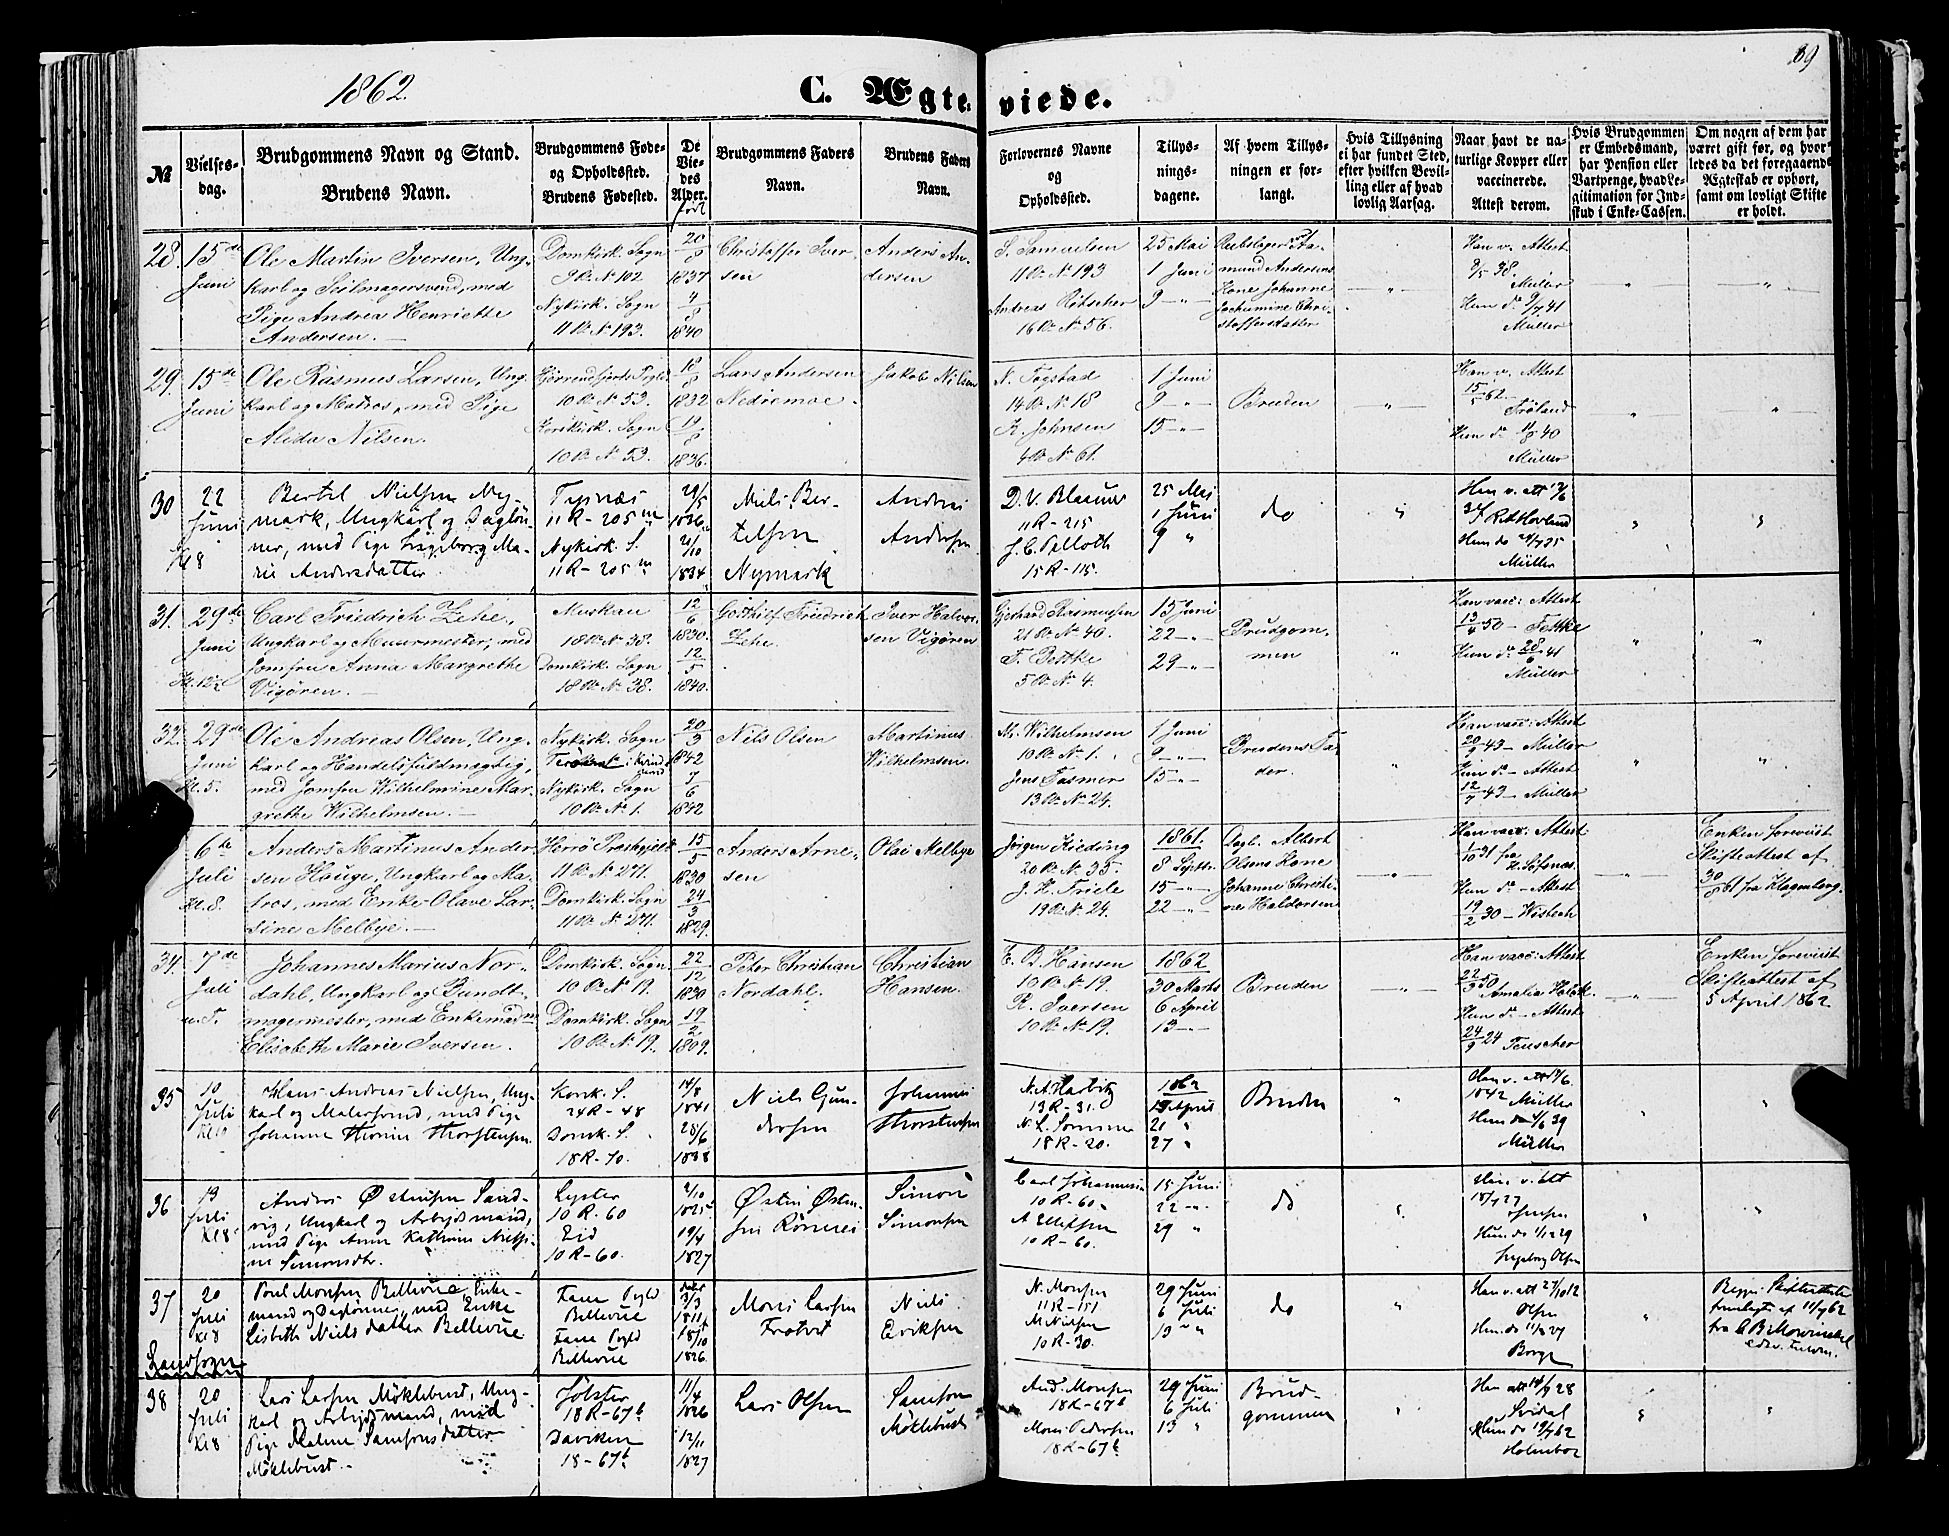 69
1862.
C. Ægteviede.
№
Vielses-
dag.
Brudgommens Navn og Stand.
Brudens Navn.
Brudgommens Føde-
og Opholdssted.
Brudens Fødested.
De
Vie-
des
Alder.
født
Brudgommens Faders
Navn.
Brudens Faders
Navn.
Forlovernes Navne
og
Opholdssted.
Tillys-
nings-
dagene.
Af hvem Tillys-
ningen er for-
langt.
Hvis Tillysning
ei har fundet Sted,
efter hvilken Bevil-
ling eller af hvad
lovlig Aarsag.
Naar havt de na-
turlige Kopper eller
vaccinerede.
Attest derom.
Hvis Brudgommen
er Embedsmand,
har Pension eller
Vartpenge, hvad Le-
gitimation for Ind-
skud i Enke-Cassen.
Om nogen af dem har
været gift før, og hvor-
ledes da det foregaaende
Ægteskab er ophørt,
samt om lovligt Skifte
er holdt.
28. 15de
Juni
Ole Martin Iversen, Ung-
karl og Seilmagersvend, med
Pige Andrea Henriette
Andersen.
Domkirk. Sogn
9 R. N. 102
Nykirk. Sogn
11 R. N. 193.
20/8
1837
4/8
1840
Christoffer Iver-
sen
Anders An-
dersen
S. Samuelsen
11 R. N. 193
Andreas Rötscher
16 R. N. 56.
25 Mai
1 Juni
9 - " -
mund Andersens
Kone Johanne
Jochumine Chri-
stoffersdatter
Han v. Attest
3/5 38.
Müller
Hun do 9/7 41
Müller
29. 15de
Juni
Ole Rasmus Larsen, Ung-
karl og Matros, med Pige
Alida Nilsen.
10 R. N. 53.
Korskirk. Sogn
10 R. N. 53.
18/8
1832
19/8
1836.
Lars Andersen
Nedremoe.
Jakob Nilsen
N. Togstad
14 R. N. 18
K. Johnsen
4 R. N. 61.
1 Juni
9 - " -
15 - " -
Bruden
Han v. Attest
15/5 62.
Frøland
Hun do 11/8 40
Müller
30 22
Juni
Kl 8
Bertel Nielsen Ny-
mark, Ungkarl og Dagløn-
ner, med Pige Ingeborg Ma-
rie Andersdatter
Tysnæs
11 R - 205 m
Nykirk. S.
11 R - 205 m
29/5
1836
21/10
1834
Niels Ber-
telsen
Nymark
Andreas
Andersen
D. V. Blaauw
11 R - 215
J. C. Pelloth
15 R - 115.
25 Mai
1 Juni
9 "
do
Han v. att
Hun do
Müller
31. 29de
Juni
Kl. 12½
Carl Friedrich Zehe,
Ungkarl og Muurmester, med
Jomfru Anna Margrethe
Vigören.
Muskau
18 R. N. 38.
Domkirk. Sogn
18 R. N. 38.
12/6
1830.
12/5
1840.
Gotthilf Friedrich
Zehe.
Iver Halvor-
sen Vigören
Gjerhard Rasmussen
21 R. N. 40.
F. Pettke
5 R. N. 4.
15 Juni
22 - " -
29 - " -
Brudgom-
men
Han vacc: Attest
13/4 50 - Fettke
Hun do 28/9 41
Müller
32. 29de
Juni
Kl. 5.
Ole Andreas Olsen, Ung-
karl og Handelsfuldmægtig,
med Jomfru Wilhelmine Mar-
grethe Wilhelmsen.
Nykirk. Sogn
Nykirk. Sogn
10 R. N. 1.
20/3
1842
7/6
1842
Nils Olsen
Martinus
Wilhelmsen.
M. Wilhelmsen
10 R. N. 1.
Jens Fasmer
13 R. N. 24.
1 Juni
9 - " -
15 - " -
Brudens Fa-
der.
Han vacc: Attest
20/9 43 - Müller
Hun do - Attest
12/7 43 - Müller
6de
Juli
Kl. 8.
Anders Martinus Ander-
sen Houge, Ungkarl og Ma-
tros, med Enke Olave Lar-
sine Melbye.
Herrø Præstegjeld
11 R. N. 271.
Domkirk. Sogn
11 R. N. 271.
15/5
1830
24/3
1829.
Anders Arne-
sen
Olai Melbye
Jørgen Kieding
20 R. N. 35.
J. H. Friele
19 R. N. 24.
1861.
8 Septbr.
15 - " -
22 - " -
Dagl. Albert
Olsens Kone
Johanne Christi-
ne Haldorsen
Han vacc: Attest
1/10 31 fra
H. Søfnæs.
Hun do - Attest
19/2 30 - Wisbech
Enken foreviist
Skifteattest af
30/8 61 fra Klagenberg.
34. 7de
Juli
u. T.
Johannes Marius Nor-
dahl, Ungkarl og Bundt-
magermester, med Enkemadm
Elisabeth Marie Iversen.
Domkirk. Sogn
10 R. N. 19.
Domkirk. Sogn
10 R. N. 19.
22/12
1830
19/2
1809.
Peter Christian
Nordahl.
Christian
Hansen.
E. B. Hansen
10 R. N. 19.
R. Iversen
10 R. N. 19.
1862
30 Marts
6 April
13 - " -
Bruden
Han vacc: Attest
22/9 50
Amalia Holck.
Hun do - Attest
24/9 24 Teuscher
Enken foreviist
Skifteattest af
5 April 1862.
35 10
Juli
Kl 10
Hans Andreas Nielsen, Ung-
karl og Malersvend, med Pige
Johanne Thorine Thorstensen.
Korsk. S.
24 R - 48
Domk. S.
18 R - 70.
14/8
1841
28/6
1838
Niels Gun-
dersen
Johannes
Thorstensen
N. A. Harbitz
13 R - 31.
N. L. Sommer
18 R - 20.
1862
13 April
21 "
27 "
Bruden
Han v. att 14/6.
1842 Müller
Hun do 4/6 39
Müller
36 13
Juli
Kl 8
Anders Østensen Sand-
vig, Ungkarl og Arbeidsmand,
med Pige Anne Kathrine Niels-
ine Simonsdtr.
Lyster
10 R - 60
Eid
10 R - 60.
2/10
1825
19/4
1827
Østen Østen-
sen Rørnes
Simon
Simonsen
Carl Johannesen
10 R - 60.
A Ellefsen
10 R - 60.
15 Juni
22 - " -
29 "
do
Han v. att
18/7 27
Jensen
Hun do 11/12 29
Ingeborg Olsen
37 20
Juli
Kl 8
Landsogn
Poul Monsen Bellevue, Enke-
mand og Daglønner, med Enke
Lisbeth Nielsdatter Bellevue
Fane Pgld
Bellevue
Fane Pgld
Bellevue
døbt
3/3
1811
18/10
1826.
Mons Larsen
Frotvet
Niels
Eriksen
N. Monsen
11 R - 151
M Nielsen
10 R - 30.
29 Juni
6 Juli
13 " "
do
Han v. att 27/10 12
Olsen
Hun do 11/9 27
Borge
Begge Skifteattester
fremlagt af 11/7 62
fra C B Mowinckel
38 20
Juli
Kl 8
Lars Larsen Møklebust, Ung-
karl og Arbeidsmand, med
Pige Malene Samsonsdatter
Møklebust.
Jølster
18 R - 67 b
Daviken
18 - 67 b
11/4
1826
12/11
1827
Lars Olsen
Samson
Møklebust
And. Monsen
18 R - 67 b
Mons Pedersen
18 R - 67 b
29 Juni
6 Juli
13 "
Brud-
gommen
Han att 14/9 28
Svidal
Hun do 19/7 62
Holmboe